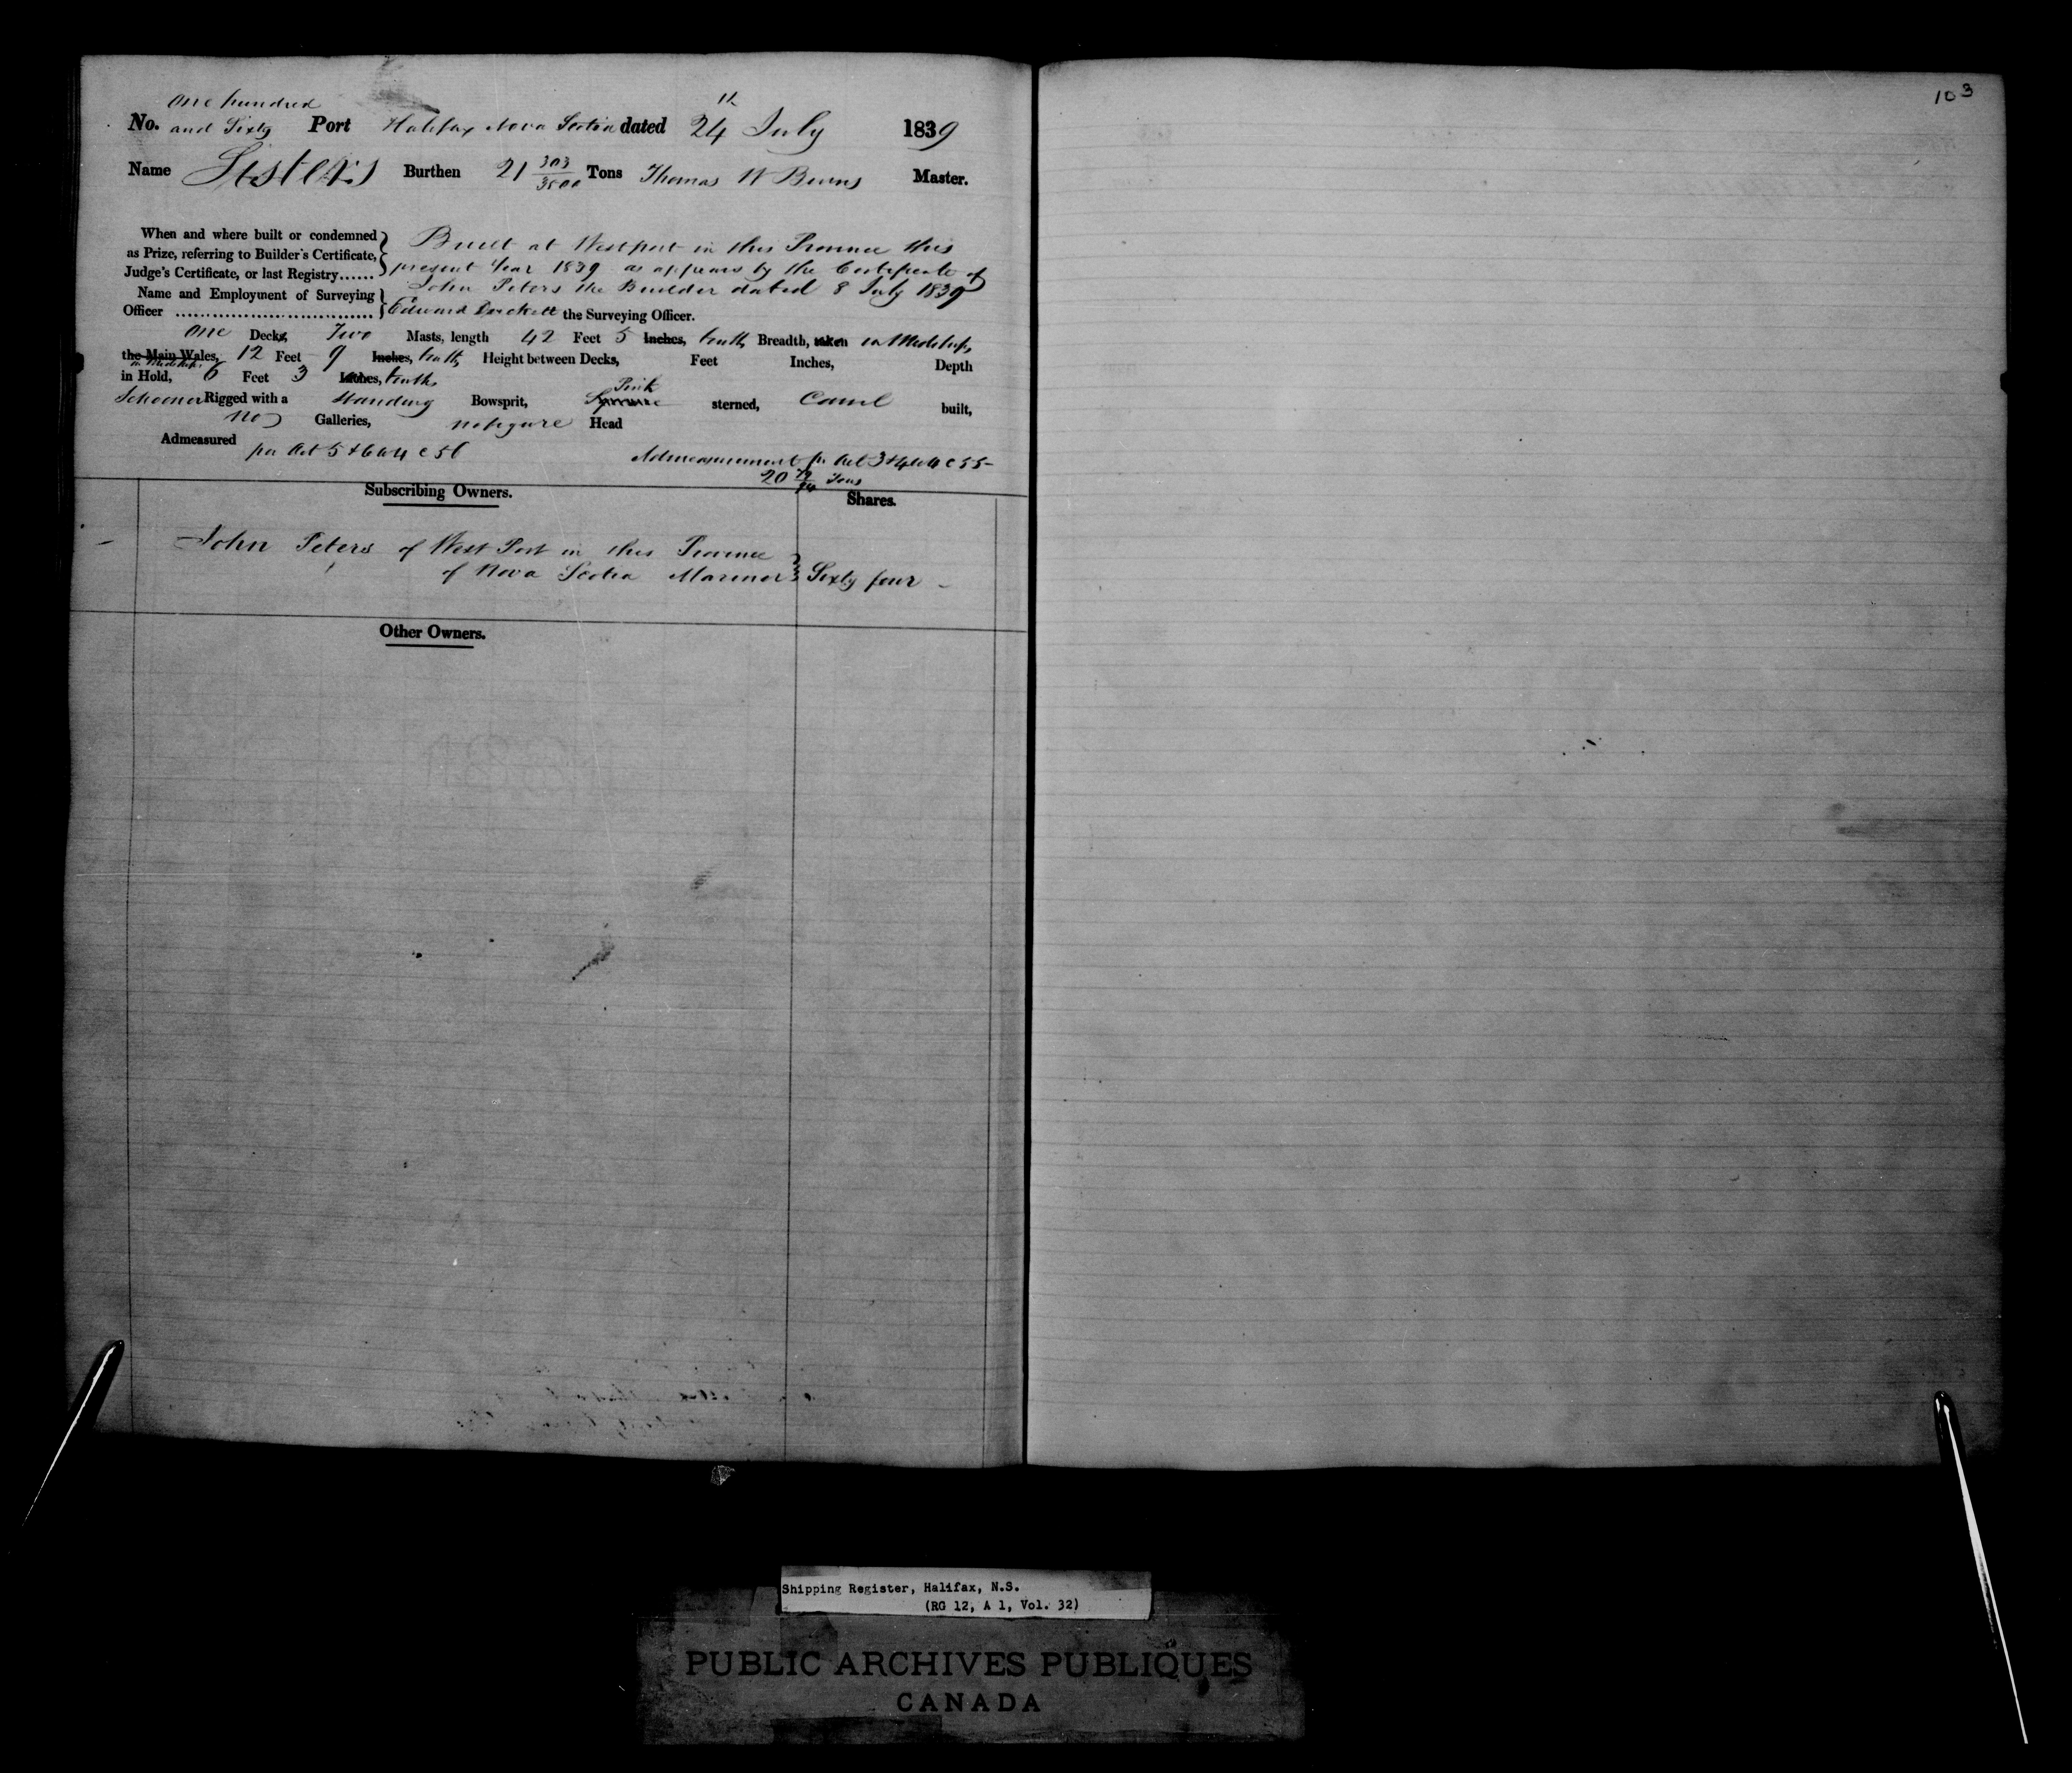 103
one hundred
No. and Sixty Port Halifax Nova Scotia dated 24th July 1839
Name Sisters Burthen 21 303/3500 Tons Thomas W Burns Master.
When and where built or condemned
as Prize, referring to Builder's Certificate,
Judge's Certificate, or last Registry......
Built at Westport in this Province this
present Year 1839 as appears by the Certificate of
John Peters the Builder dated 8 July 1839
Name and Employment of Surveying
Officer ................................ Edward the Surveying Officer.
One Decks, Two Masts, length 42 Feet 5 Inches, tenths Breadth, taken in Midships
the Main Wales, 12 Feet 9 Inches, tenths Height between Decks, Feet Inches, Depth
in Midships
in Hold, 6 Feet 3 Inches, tenths
Pink
Schooner Rigged with a Standing Bowsprit, Square sterned, Carvel built,
no Galleries, no figure Head
Admeasured per Act 5 & 6 W 4 c 56
Admeasurement pr Act 3 & 4 W 4 c 55
20 Tons
Subscribing Owners.
Shares.
John Peters of West Port in this Province
of Nova Scotia Mariner Sixty four
Other Owners.
Shipping Register, Halifax, N.S.
(RG 12, A 1, Vol. 32)
PUBLIC ARCHIVES PUBLIQUES
CANADA